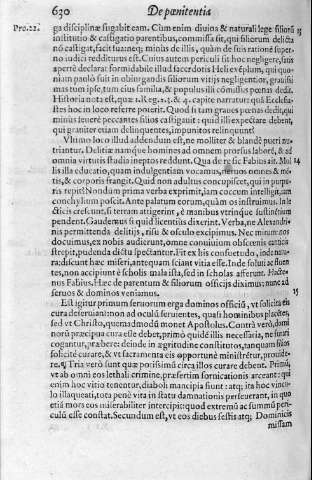 630 De pœnitentia
Pro. 22. ga disciplinæ fugabit eam. Cùm enim diuino & naturali lege filiorũ 13
institutio & castigatio parentibus, commissa sit, qui filiorum delicta
nõ castigat, facit suaneq; minus de illis, quàm de suis ratione superno
iudici redditurus est. Cuius autem periculi sit hoc negligere, satis
apertè declarat formidabile illud sacerdotis Heli exẽplum, qui quoniam
paulò fuit in obiurgandis filiorum vitijs negligentior, grauissimas
tum ipse, tum eius familia, & populus illi cõmissus pœnas dedit.
Historia nota est, quæ 1. Reg. 2. & 4. capite narratur: quã Ecclesiastes
hoc in loco referre poterit. Quod si tam graues pœnas dedit, qui
minùs seuerè peccantes filios castigauit: quid illi expectare debent,
qui grauiter etiam delinquentes, impunitos relinquunt?
Vltimo loco illud addendum est, ne molliter & blandè pueri nutriantur.
Delitiæ namque homines ad omnem prorsus laborẽ, & ad
omnia virtutis studia ineptos reddunt. Qua de re sic Fabius ait. Mollis 14
illa educatio, quam indulgentiam vocamus, neruos omnes & mẽtis,
& corporis frangit. Quid non adultus concupiscet, qui in purpuris
repit? Nondum prima verba exprimit, iam coccum intelligit, iam
conchylium poscit. Ante palatum eorum, quàm os instruimus. In lecticis
crescunt, si terram attigerint, è manibus vtrinque sustinentium
pendent. Gaudemus si quid licentiùs dixerint. Verba, ne Alexandrinis
permittenda delitijs, risu & osculo excipimus. Nec mirum: nos
docuimus, ex nobis audierunt, omne conuiuium obscœnis canticis
strepit, pudenda dictu spectantur. Fit ex his consuetudo, inde natura:
discunt hæc miseri, antequam sciant vitia esse. Inde soluti ac fluentes,
non accipiunt è scholis mala ista, sed in scholas afferunt. Hactenus
Fabius. Hæc de parentum & filiorum officijs diximus: nunc ad
seruos & dominos veniamus.
Est igitur primum seruorum erga dominos officiũ, vt solicita eis 15
cura deseruiant: non ad oculũ seruientes, quasi hominibus placentes,
sed vt Christo, quemadmodũ monet Apostolus. Contrà verò, dominorũ
præcipua cura esse debet, primò quidẽ illis necessaria, ne furari
cogantur, præbere: deinde in ægritudine constitutos, tanquam filios
solicitè curare, & vt sacramenta eis opportunè ministrẽtur, prouidere.
¶ Tria verò sunt quæ potissimũ circa illos curare debent. Primũ,
vt ab omni eos lethali crimine, præsertim fornicationis arceant: qui
enim hoc vitio tenentur, diaboli mancipia fiunt: atq; ita hoc vinculo
illaqueati, tota penè vita in statu damnationis perseuerant, in quo
etiã mors eos miserabiliter intercipit: quod extremũ ac summũ periculũ
esse constat. Secundum est, vt eos diebus festis atq; Dominicis
missam